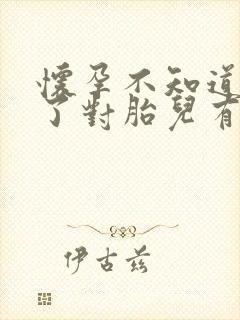 懷孕不知道
了對胎兒有
伊古兹